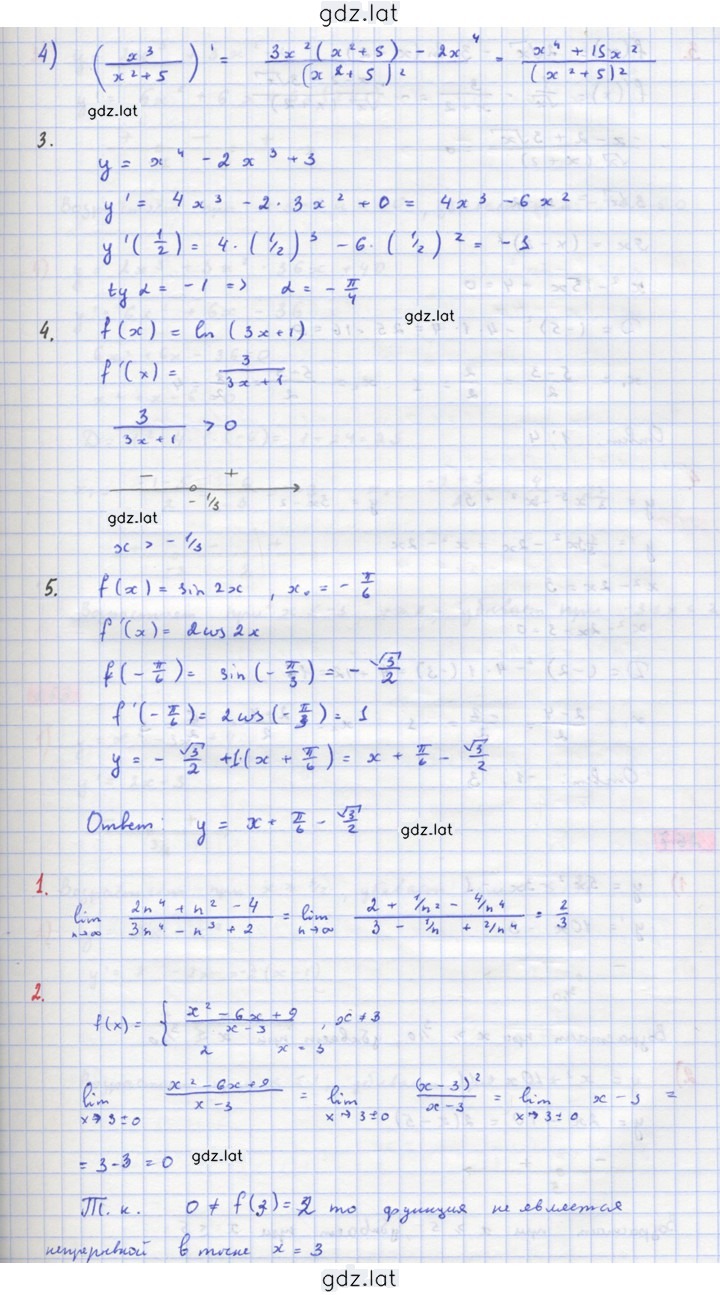 gdz.lat
4) (x³/(x²+5))' = (3x²(x²+5) - 2x⁴)/(x²+5)² = (x⁴+15x²)/(x²+5)²
gdz.lat
3.
y = x⁴ - 2x³ + 3
y' = 4x³ - 2·3x² + 0 = 4x³ - 6x²
y'(1/2) = 4·(1/2)³ - 6·(1/2)² = -1
tg α = -1 => α = -π/4
gdz.lat
4. f(x) = ln(3x+1)
f'(x) = 3/(3x+1)
3/(3x+1) > 0
- +
-1/3
gdz.lat
x > -1/3
5. f(x) = sin 2x, x₀ = -π/6
f'(x) = 2cos2x
f(-π/6) = sin(-π/3) = -√3/2
f'(-π/6) = 2cos(-π/3) = 1
y = -√3/2 + 1·(x + π/6) = x + π/6 - √3/2
Ответ: y = x + π/6 - √3/2
gdz.lat
1.
lim n→∞ (2n⁴ + n² - 4)/(3n⁴ - n³ + 2) = lim n→∞ (2 + 1/n² - 4/n⁴)/(3 - 1/n + 2/n⁴) = 2/3
2.
f(x) = { (x² - 6x + 9)/(x-3), x ≠ 3
2 x = 3
lim x→3±0 (x² - 6x + 9)/(x-3) = lim x→3±0 (x-3)²/(x-3) = lim x→3±0 x-3 =
= 3-3 = 0
gdz.lat
Т.к. 0 ≠ f(3) = 2 то функция не является
непрерывной в точке x = 3
gdz.lat